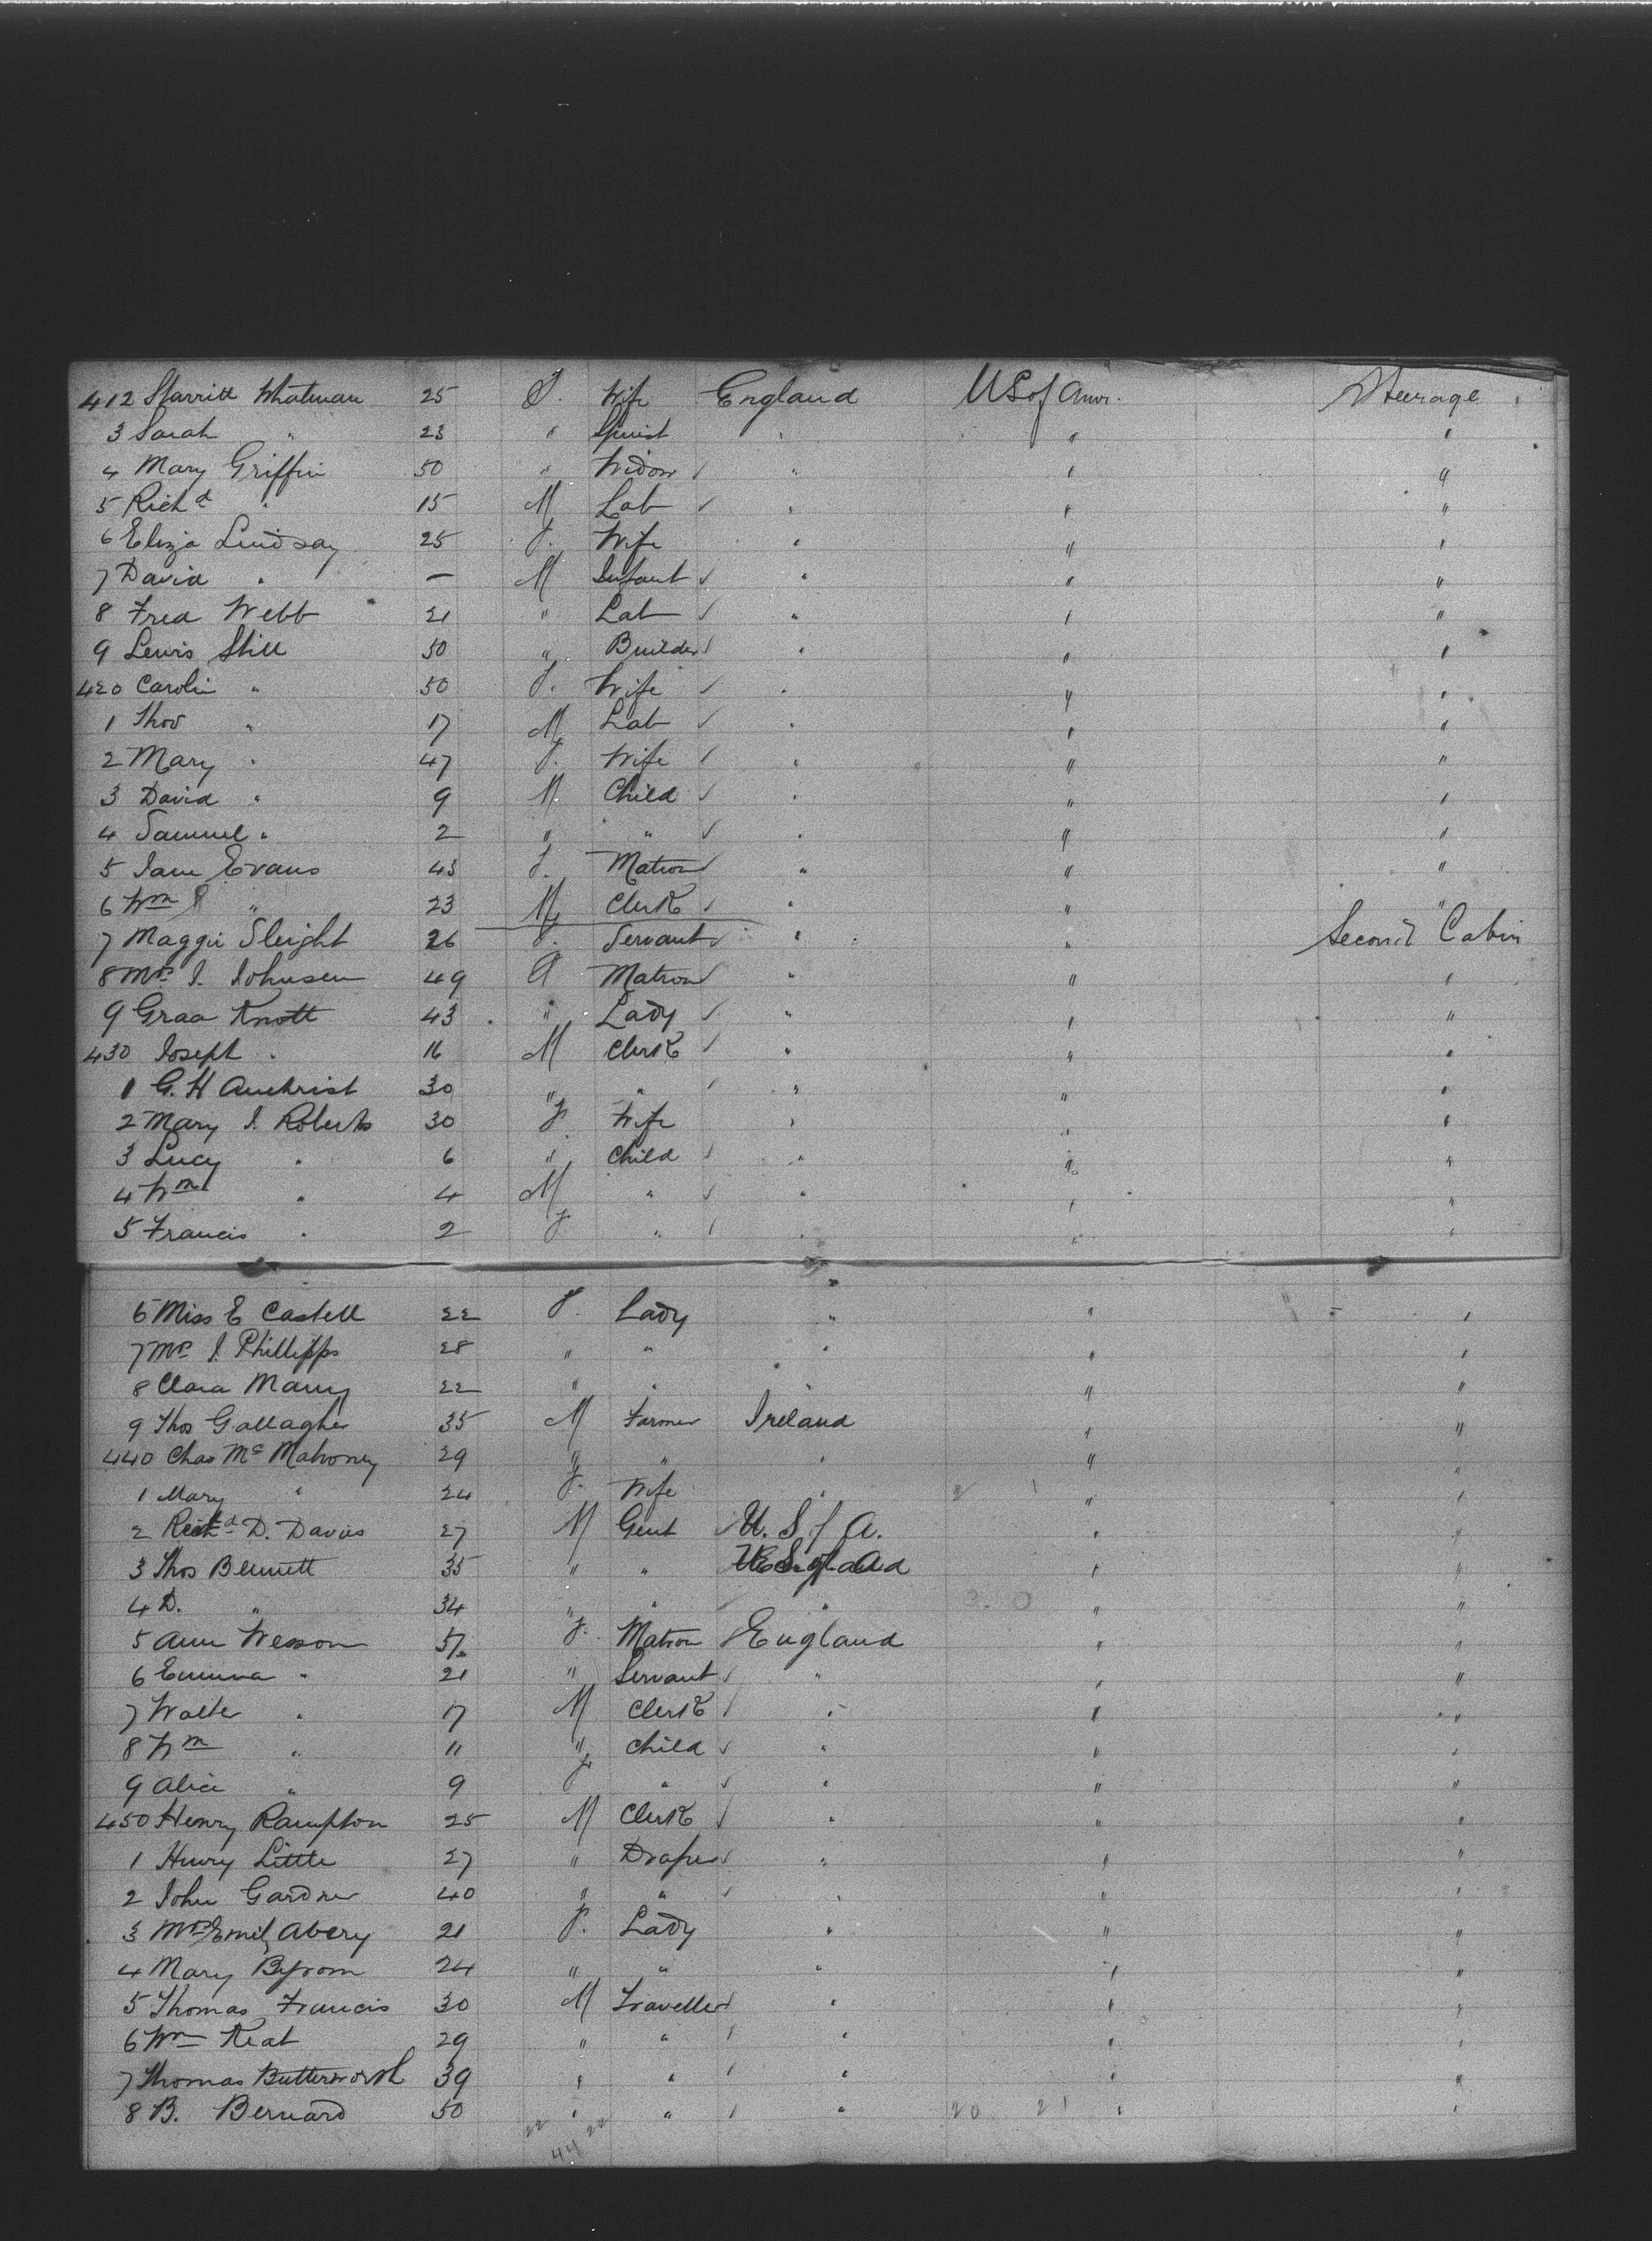 412 Harriett Whatman 25 F. Wife England US of Amr. Steerage
3 Sarah " 23 " Spinst " " "
4 Mary Griffin 50 " Widow " " "
5 Richd " 15 M Lab " " "
6 Eliza Lindsay 25 F. Wife " " "
7 David " — M Infant " " "
8 Fred Webb 21 " Lab " " "
9 Lewis Still 50 " Builder " " "
420 Carolin " 50 F. Wife " " "
1 Thos " 17 M Lab " " "
2 Mary " 47 F. Wife " " "
3 David " 9 M Child " " "
4 Samuel " 2 " " " " "
5 Jane Evans 43 F. Matron " " "
6 Wm J " 23 M Clerk " " "
7 Maggie Sleight 26 F. Servant " " Second Cabin
8 Mrs J. Johnsen 49 F Matron " " "
9 Grac Knott 43 " Lady " " "
430 Joseph " 16 M Clerk " " "
1 G. H 30 " " " " "
2 Mary J. Roberts 30 F. Wife " " "
3 Lucy " 6 " Child " " "
4 Wm " 4 M " " " "
5 Francis " 2 F " " " "
6 Miss E Castell 22 F. Lady " " "
7 Mrs J. Phillipps 28 " " " " "
8 Clara Many 22 " " " " "
9 Thos Gallagher 35 M Farmer Ireland " "
440 Chas Mc Mahoney 29 " " " " "
1 Mary " 24 F. Wife " " "
2 Richd D. Davis 27 M Gent U. S of A. " "
3 Thos Bennett 35 " " " "
4 D. " 34 " " " " "
5 Ann Wesson 57 F. Matron England " "
6 Emma " 21 " Servant " " "
7 Walter " 17 M Clerk " " "
8 Wm " 11 " Child " " "
9 Alice " 9 F " " " "
450 Henry Rampton 25 M Clerk " " "
1 Henry Little 27 " Draper " " "
2 John Gardner 40 " " " " "
3 Mrs Emily Abery 21 F. Lady " " "
4 Mary Byrom 24 " " " " "
5 Thomas Francis 30 M Traveller " " "
6 Wm Keat 29 " " " " "
7 Thomas Butterworth 39 " " " " "
8 B. Bernard 50 " " " 20 21 " "
22 22
44